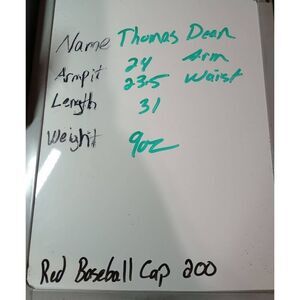 Name Thomas Dean
Armpit 24 Arm
Length 23.5 Waist
31
Weight 9oz
Red Baseball Cap 200